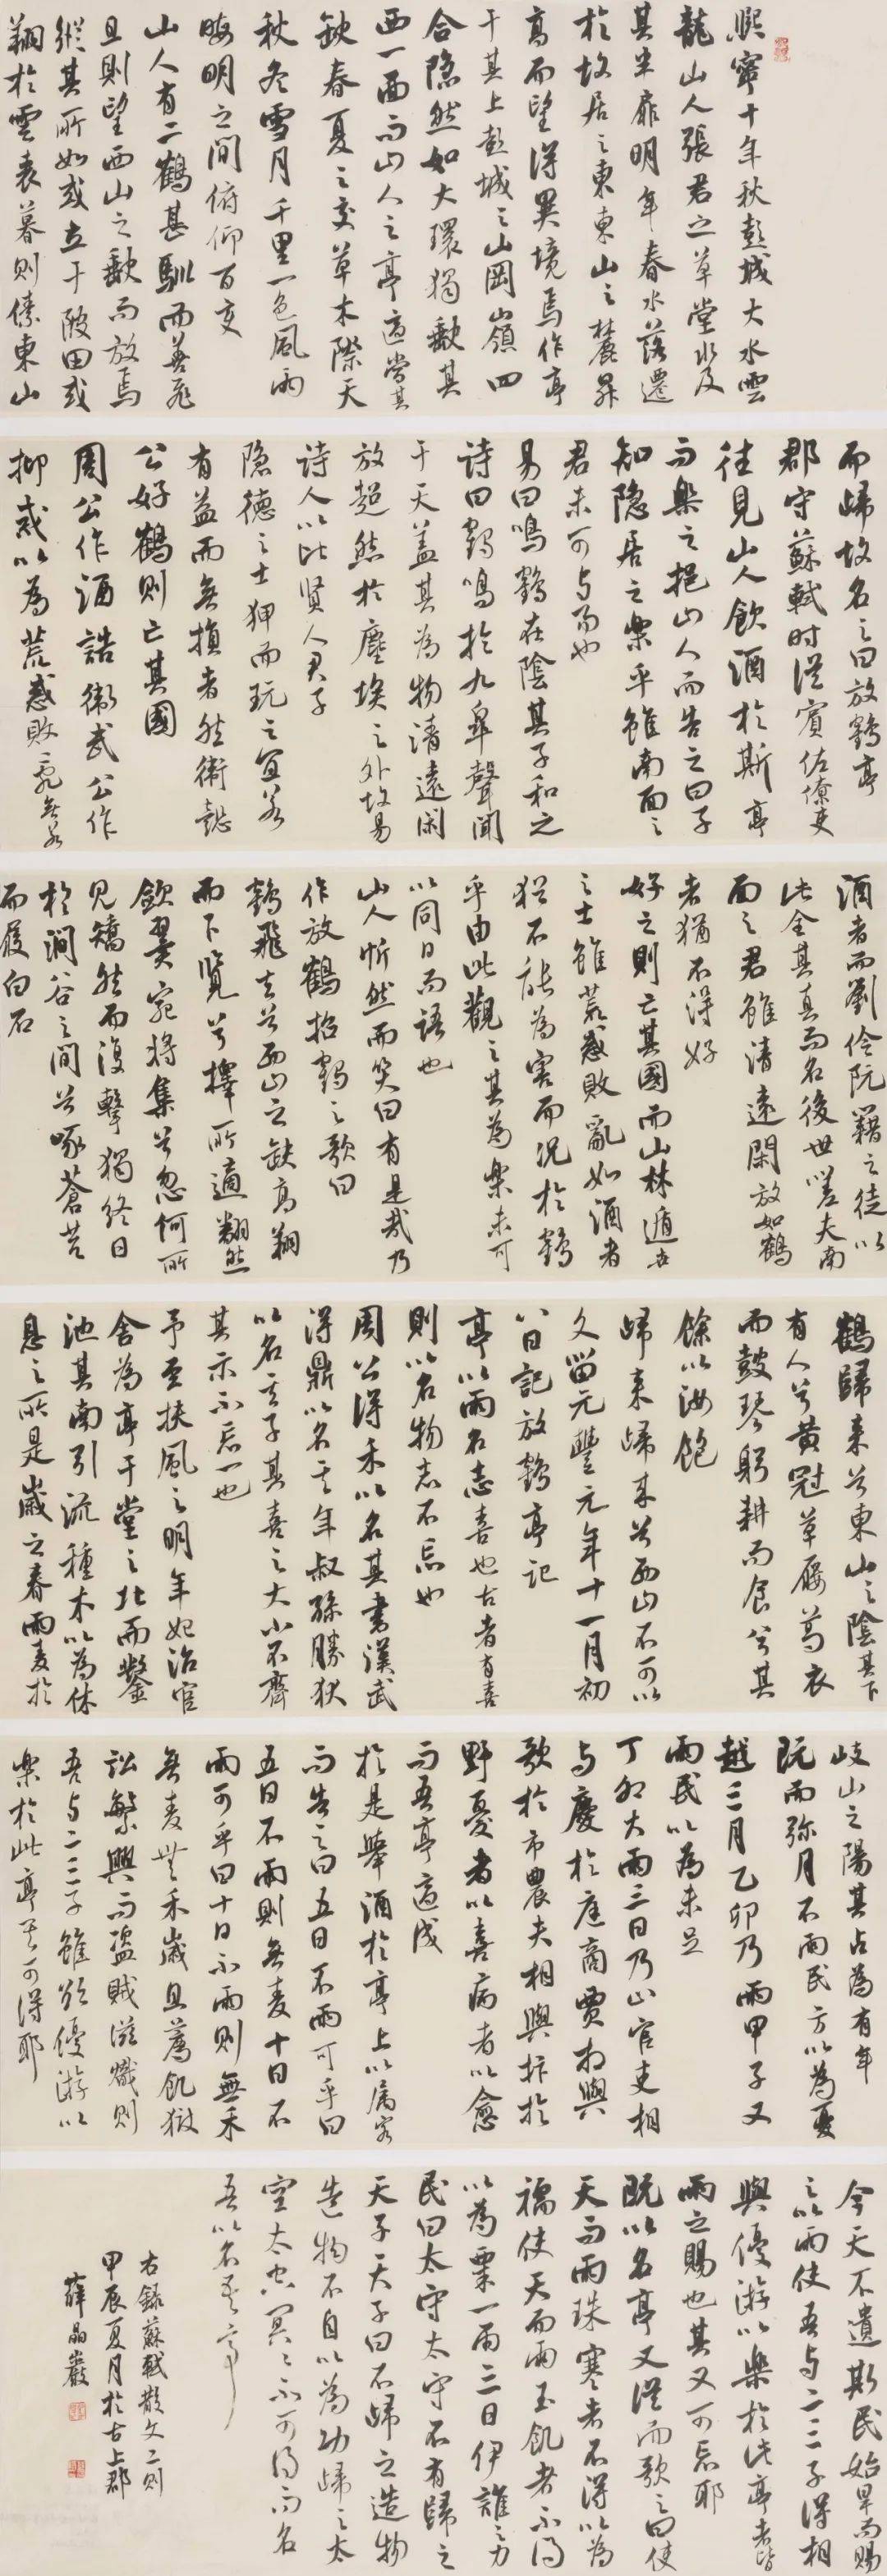 熙寧十年秋彭城大水雲
龍山人張君之草堂水及
其半扉明年春水落遷
於故居之東東山之麓昇
高而望得異境焉作亭
于其上彭城之山岡嶺四
合隱然如大環獨缺其
西一面而山人之亭適當其
缺春夏之交草木際天
秋冬雪月千里一色風雨
晦明之間俯仰百變
山人有二鶴甚馴而善飛
旦則望西山之缺而放焉
縱其所如或立于陂田或
翔於雲表暮則傃東山
而歸故名之曰放鶴亭
郡守蘇軾時從賓佐僚吏
往見山人飲酒於斯亭
而樂之挹山人而告之曰子
知隱居之樂乎雖南面之
君未可与易也
易曰鳴鶴在陰其子和之
詩曰鶴鳴於九皋聲聞
于天蓋其為物清遠閑
放超然於塵埃之外故易
詩人以比賢人君子
隱德之士狎而玩之宜若
有益而無損者然衛懿
公好鶴則亡其國
周公作酒誥衛武公作
抑戒以為荒惑敗亂無若
酒者而劉伶阮籍之徒以
此全其真而名後世嗟夫南
面之君雖清遠閑放如鶴
者猶不得好
好之則亡其國而山林遁世
之士雖荒惑敗亂如酒者
猶不能為害而況於鶴
乎由此觀之其為樂未可
以同日而語也
山人忻然而笑曰有是哉乃
作放鶴招鶴之歌曰
鶴飛去兮西山之缺高翔
而下覽兮擇所適翻然
斂翼宛將集兮忽何所
見矯然而復擊獨終日
於澗谷之間兮啄蒼苔
而履白石
鶴歸來兮東山之陰其下
有人兮黃冠草屨葛衣
而鼓琴躬耕而食兮其
餘以汝飽
歸來歸來兮西山不可以
久留元豐元年十一月初
八日記放鶴亭記
亭以雨名志喜也古者有喜
則以名物志不忘也
周公得禾以名其書漢武
得鼎以名其年叔孫勝狄
以名其子其喜之大小不齊
其示不忘一也
予至扶風之明年始治官
舍為亭于堂之北而鑿
池其南引流種木以為休
息之所是歲之春雨麦於
岐山之陽其占為有年
既而弥月不雨民方以為憂
越三月乙卯乃雨甲子又
雨民以為未足
丁卯大雨三日乃止官吏相
与慶於庭商賈相與
歌於市農夫相與抃於
野憂者以喜病者以愈
而吾亭適成
於是舉酒於亭上以属客
而告之曰五日不雨可乎曰
五日不雨則無麦十日不
雨可乎曰十日不雨則無禾
無麦無禾歲且薦飢獄
訟繁興而盜賊滋熾則
吾与二三子雖欲優游以
樂於此亭其可得耶
今天不遺斯民始旱而賜
之以雨使吾与二三子得相
與優游以樂於此亭者皆
雨之賜也其又可忘耶
既以名亭又從而歌之曰使
天而雨珠寒者不得以為
襦使天而雨玉飢者不得
以為粟一雨三日伊誰之力
民曰太守太守不有歸之
天子天子曰不歸之造物
造物不自以為功歸之太
空太空冥冥不可得而名
吾以名吾亭
右錄蘇軾散文二則
甲辰夏月於古上郡
薛晶巖